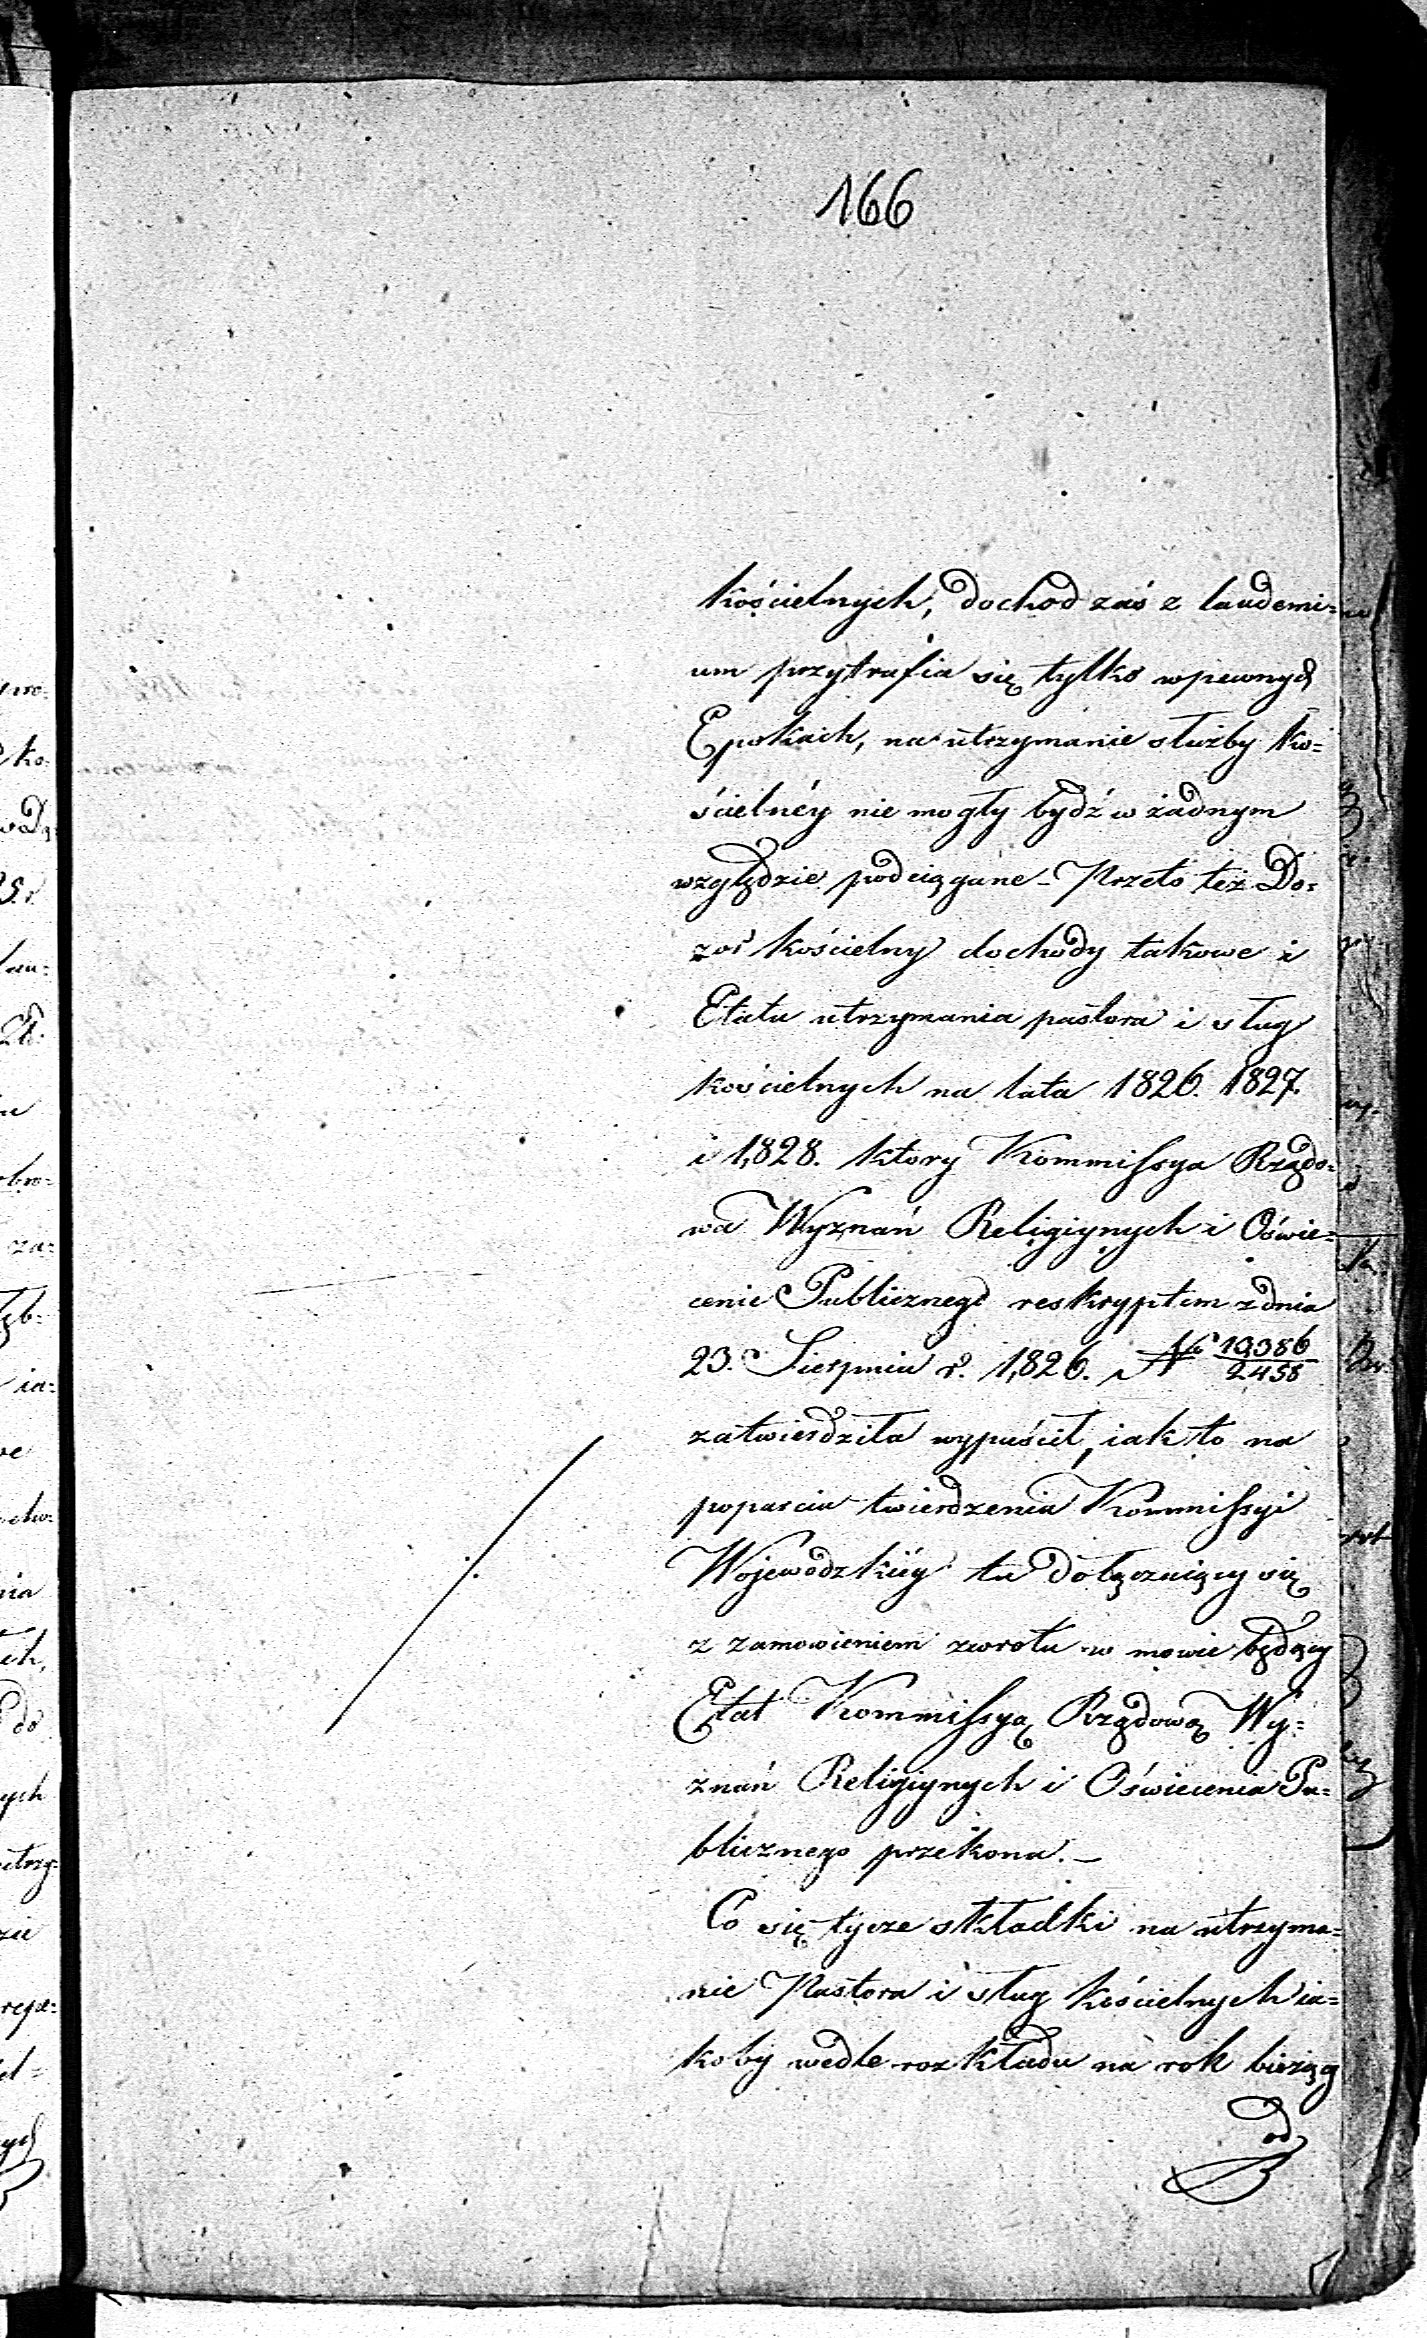 166
kościelnych, dochod zaś z laudemi=
um przytrafia się tylko w pewnych
Epokach, na utrzymanie służby ko=
ścielnéy nie mogły bydź w żadnym
względzie podciągane – Przeto też Do=
zor kościelny dochody takowe z
Etatu utrzymania pastora i sług
kościelnych na lata 1826. 1827.
i 1,828. ktory Kommissya Rządo=
wa Wyznań Religiynych i Oświe=
cenie Publicznego reskryptem z dnia
23. Sierpnia r. 1,826. No 10386/2458
zatwierdziła wypuścił, iak to na
poparcie twierdzenia Kommissyi
Wojewodzkiéy tu dołączaiący się
z zamowieniem zwrotu w mowie będący
Etat Kommissyą Rządową Wy=
znań Religiynych i Oświecenia Pu=
blicznego przekona. –
Co się tycze składki na utrzyma=
nie Pastora i sług kościelnych ia=
koby wedle rozkładu na rok bieżący
od